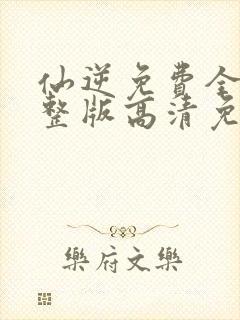 仙逆免費全
整版高清免
樂府文樂